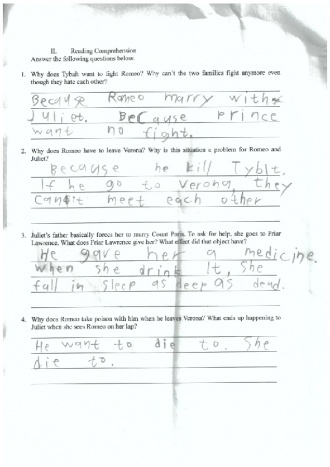 II. Reading Comprehension
Answer the following questions below.
1. Why does Tybalt want to fight Romeo? Why can't the two families fight anymore even
though they hate each other?
Because Romeo marry with
Juliet. Because prince
want no fight.
2. Why does Romeo have to leave Verona? Why is this situation a problem for Romeo and
Juliet?
Because he kill Tyblt.
If he go to verona, they
Can't meet each other
3. Juliet's father basically forces her to marry Count Paris. To ask for help, she goes to Friar
Lawrence. What does Friar Lawrence give her? What effect did that object have?
He gave her a medicine.
when she drink It, she
fall in sleep as deep as dead.
4. Why does Romeo take poison with him when he leaves Verona? What ends up happening to
Juliet when she sees Romeo on her lap?
He want to die to. She
die to.